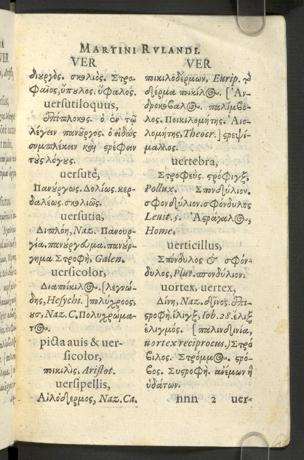 MARTINI RVLANDI.
VER
VER
πανοῦργος. σκολιός. Στρο-
φαῖος, ὕπουλος. ὕφαλος.
uersutiloquus,
ἐπίπλοκος. ὁ ἐν τῷ
λέγειν πανοῦργος. ὁ εἰδὼς
συμπλέκειν καὶ στρέφειν
τοὺς λόγους.
uersutè,
Πανούργως. Δολίως. κερ-
δαλέως. σκολιῶς.
uersutia,
Διπλόη, Naz. Πανουρ-
γία. πανούργευμα. πανούρ-
γημα Στροφή, Galen.
uersicolor,
Hesych.
Naz. C. Πολυχρώμα-
τος.
picta auis & uer-
sicolor,
ποικιλὶς. Aristot.
uersipellis,
Αἰολόδερμος, Naz. Ca.
ποικιλοδέρμων, Eurip.
ποικίλος.
παλίμβο-
λος. Ποικιλομήτης. Αἰο-
λομήτης, Theocr.
μαλλος.
uertebra,
Στροφεύς. στρόφιγξ,
Pollux. Σπονδύλιον.
σφονδύλιον. σφόνδυλος
Leuit. 5. Ἀστράγαλος,
Home.
uerticillus,
Σπόνδυλος & σφόν-
δυλος, Plur.
uortex, uertex,
Δίνη, Naz.
στροφή. ἕλιγξ, Iob. 28. ἕλιξ
ἑλιγμός.
uortex reciprocus,) Στρό-
βιλος. Στρόμβος. στρό-
βος. Συστροφὴ ἀνέμων ἢ
ὑδάτων.
nnn 2 uer-